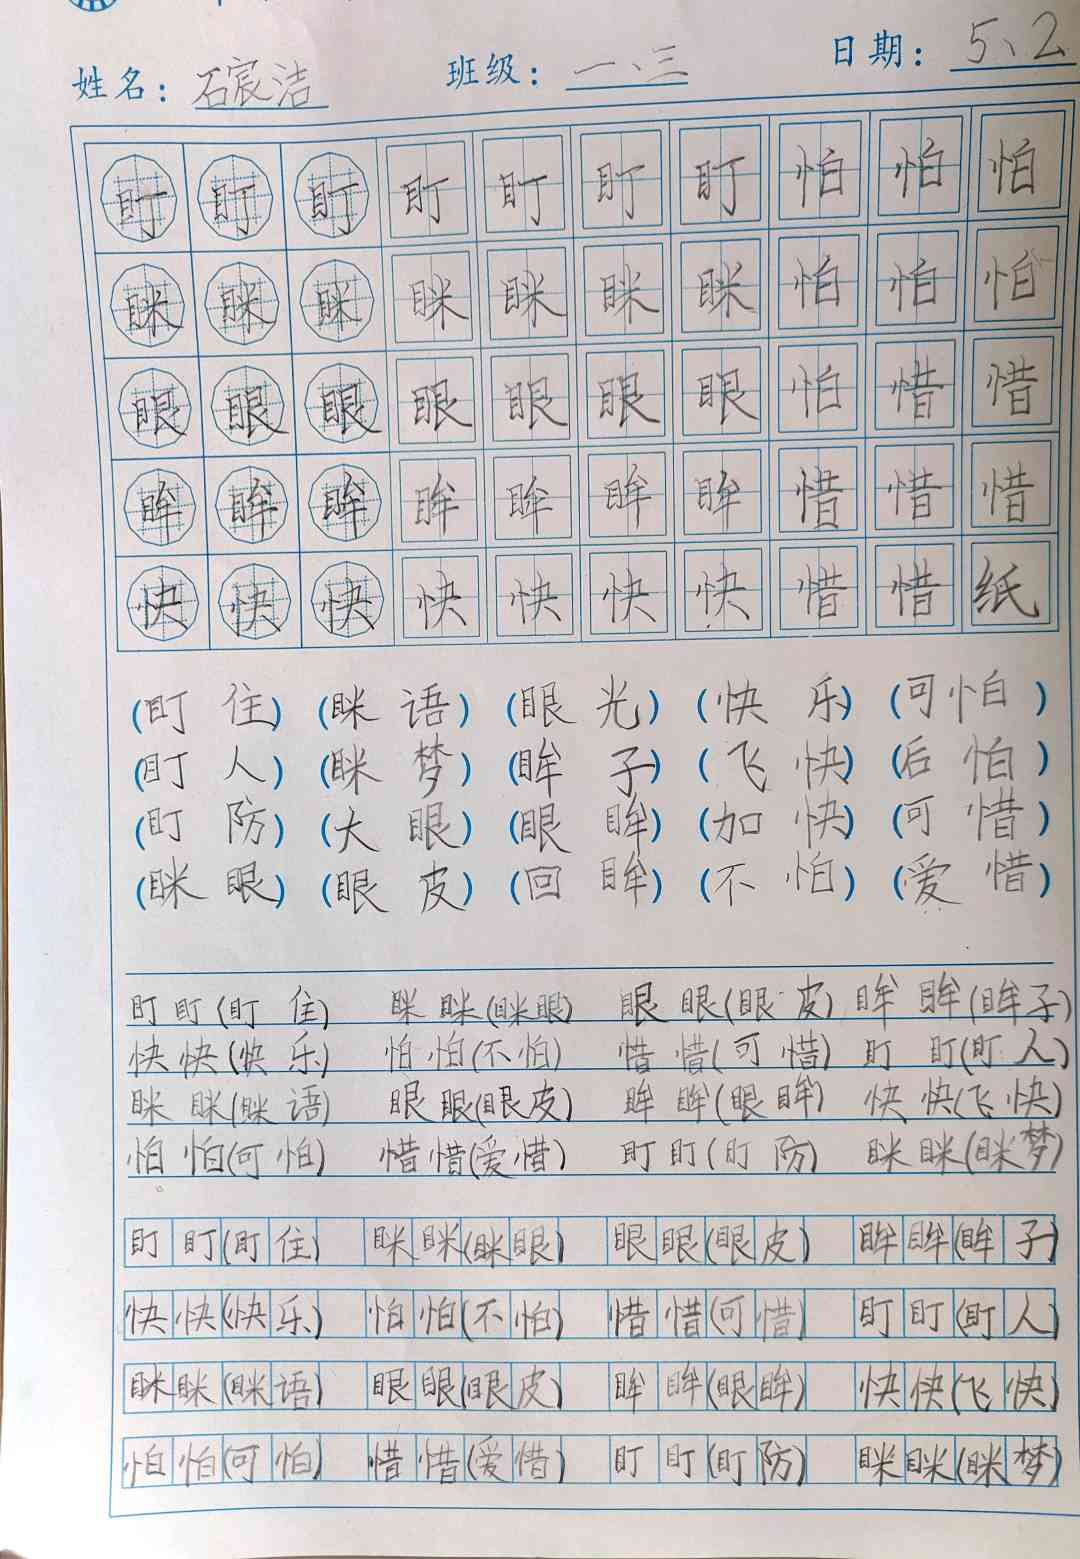 姓名：石宸洁 班级：一、三 日期：5、2
盯 盯 盯 盯 盯 盯 盯 怕 怕 怕
眯 眯 眯 眯 眯 眯 眯 怕 怕 怕
眼 眼 眼 眼 眼 眼 眼 怕 惜 惜
眸 眸 眸 眸 眸 眸 眸 惜 惜 惜
快 快 快 快 快 快 快 惜 惜 纸
(盯 住) (眯 语) (眼 光) (快 乐) (可 怕)
(盯 人) (眯 梦) (眸 子) (飞 快) (后 怕)
(盯 防) (大 眼) (眼 眸) (加 快) (可 惜)
(眯 眼) (眼 皮) (回 眸) (不 怕) (爱 惜)
盯 盯 (盯 住) 眯 眯 (眯 眼) 眼 眼 (眼 皮) 眸 眸 (眸 子)
快 快 (快 乐) 怕 怕 (不 怕) 惜 惜 (可 惜) 盯 盯 (盯 人)
眯 眯 (眯 语) 眼 眼 (眼 皮) 眸 眸 (眼 眸) 快 快 (飞 快)
怕 怕 (可 怕) 惜 惜 (爱 惜) 盯 盯 (盯 防) 眯 眯 (眯 梦)
盯 盯 (盯 住) 眯 眯 (眯 眼) 眼 眼 (眼 皮) 眸 眸 (眸 子)
快 快 (快 乐) 怕 怕 (不 怕) 惜 惜 (可 惜) 盯 盯 (盯 人)
眯 眯 (眯 语) 眼 眼 (眼 皮) 眸 眸 (眼 眸) 快 快 (飞 快)
怕 怕 (可 怕) 惜 惜 (爱 惜) 盯 盯 (盯 防) 眯 眯 (眯 梦)